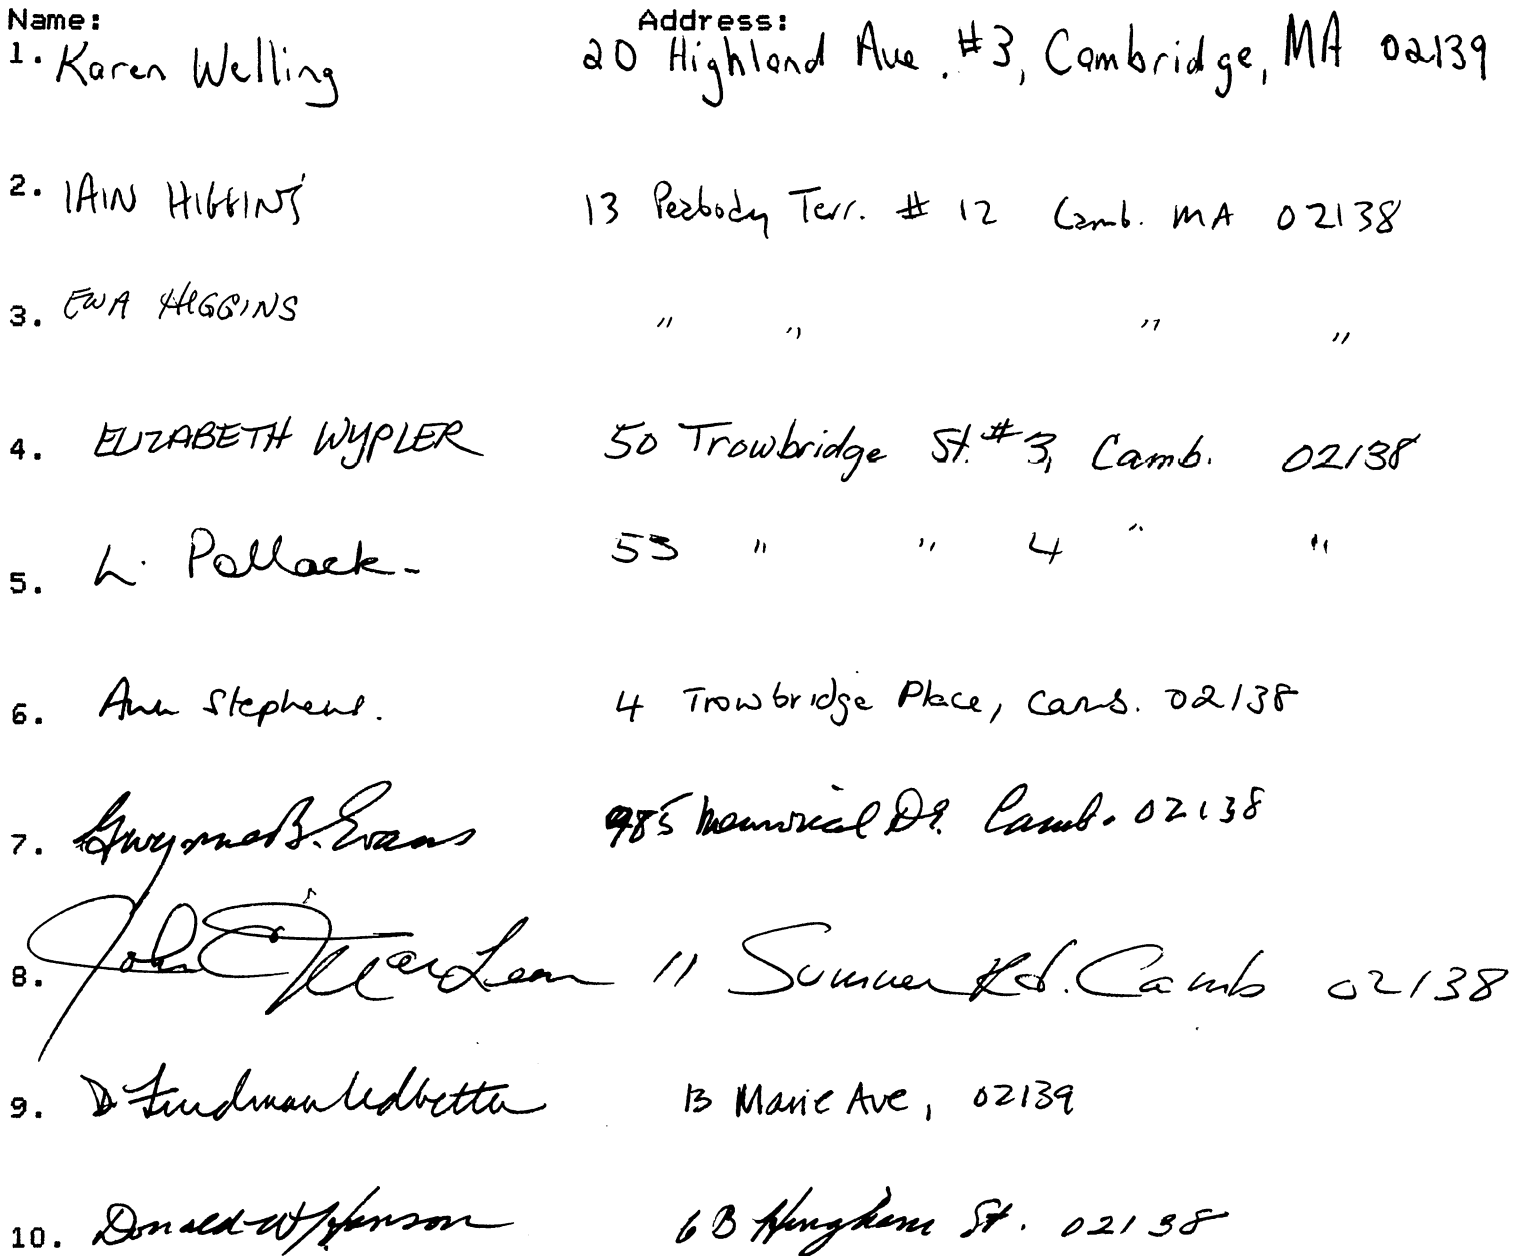 Name: Address:
1. Karen Welling 20 Highland Ave. #3, Cambridge, MA 02139
2. IAIN HIGGINS 13 Peabody Terr. # 12 Camb. MA 02138
3. EWA HIGGINS " " " "
4. ELIZABETH WYPLER 50 Trowbridge St. #3, Camb. 02138
5. L. Pollack 53 " " 4 " "
6. Ann Stephens. 4 Trowbridge Place, Camb. 02138
7. Gwynne B. Evans 985 Memorial Dr. Camb. 02138
8. John MacLean 11 Sumner Rd. Camb 02138
9. D Friedman Ledbetter 13 Marie Ave, 02139
10. Donald W Hanson 6B Hingham St. 02138